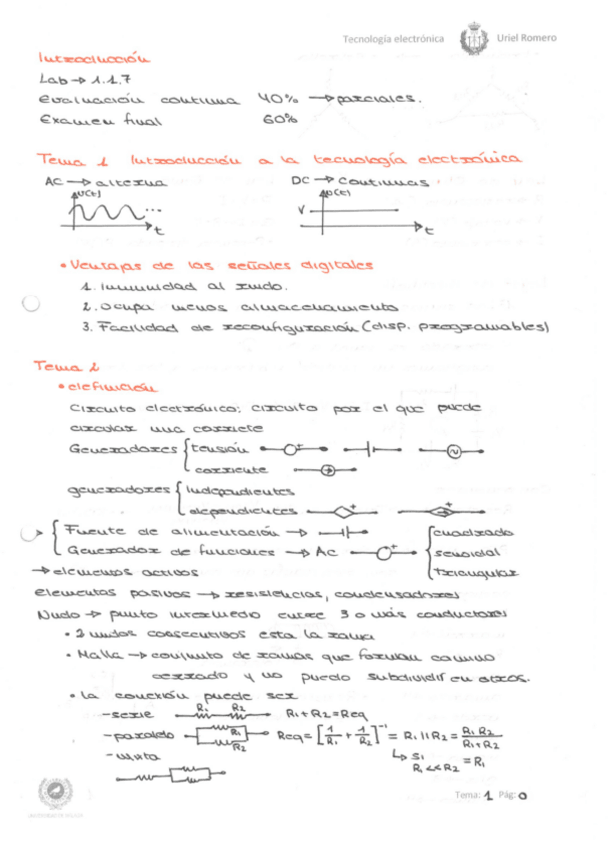 Tecnología electrónica Uriel Romero
Introducción
Lab → 1.1.7
evaluación continua 40% → parciales.
Examen final 60%
Tema 1 Introducción a la tecnología electrónica
AC → alterna DC → continuas
U(t) U(t)
... V
t t
• Ventajas de las señales digitales
1. Inmunidad al ruido.
2. Ocupa menos almacenamiento
3. Facilidad de reconfiguración (disp. programables)
Tema 2
• definición
Circuito electrónico: circuito por el que puede
circular una corriete
Generadores { tensión
corriente
generadores { Independientes
dependientes
> { Fuente de alimentación → { cuadrado
Generador de funciones → AC senoidal
→ elementos activos triangular
elementos pasivos → resisiencias, condensadores
Nudo → punto intermedio entre 3 o más conductores
• 2 nudos consecutivos esta la rama
• Malla → conjunto de ramas que forman camino
cerrado y no puedo subdividir en otros.
• la conexión puede ser
- serie R1 R2 R1+R2=Req
- paralelo R1 R2 Req = [1/R1 + 1/R2]^-1 = R1 || R2 = R1 R2 / R1+R2
- mixta ↳ si R1 << R2 = R1
Tema: 1 Pág: 0